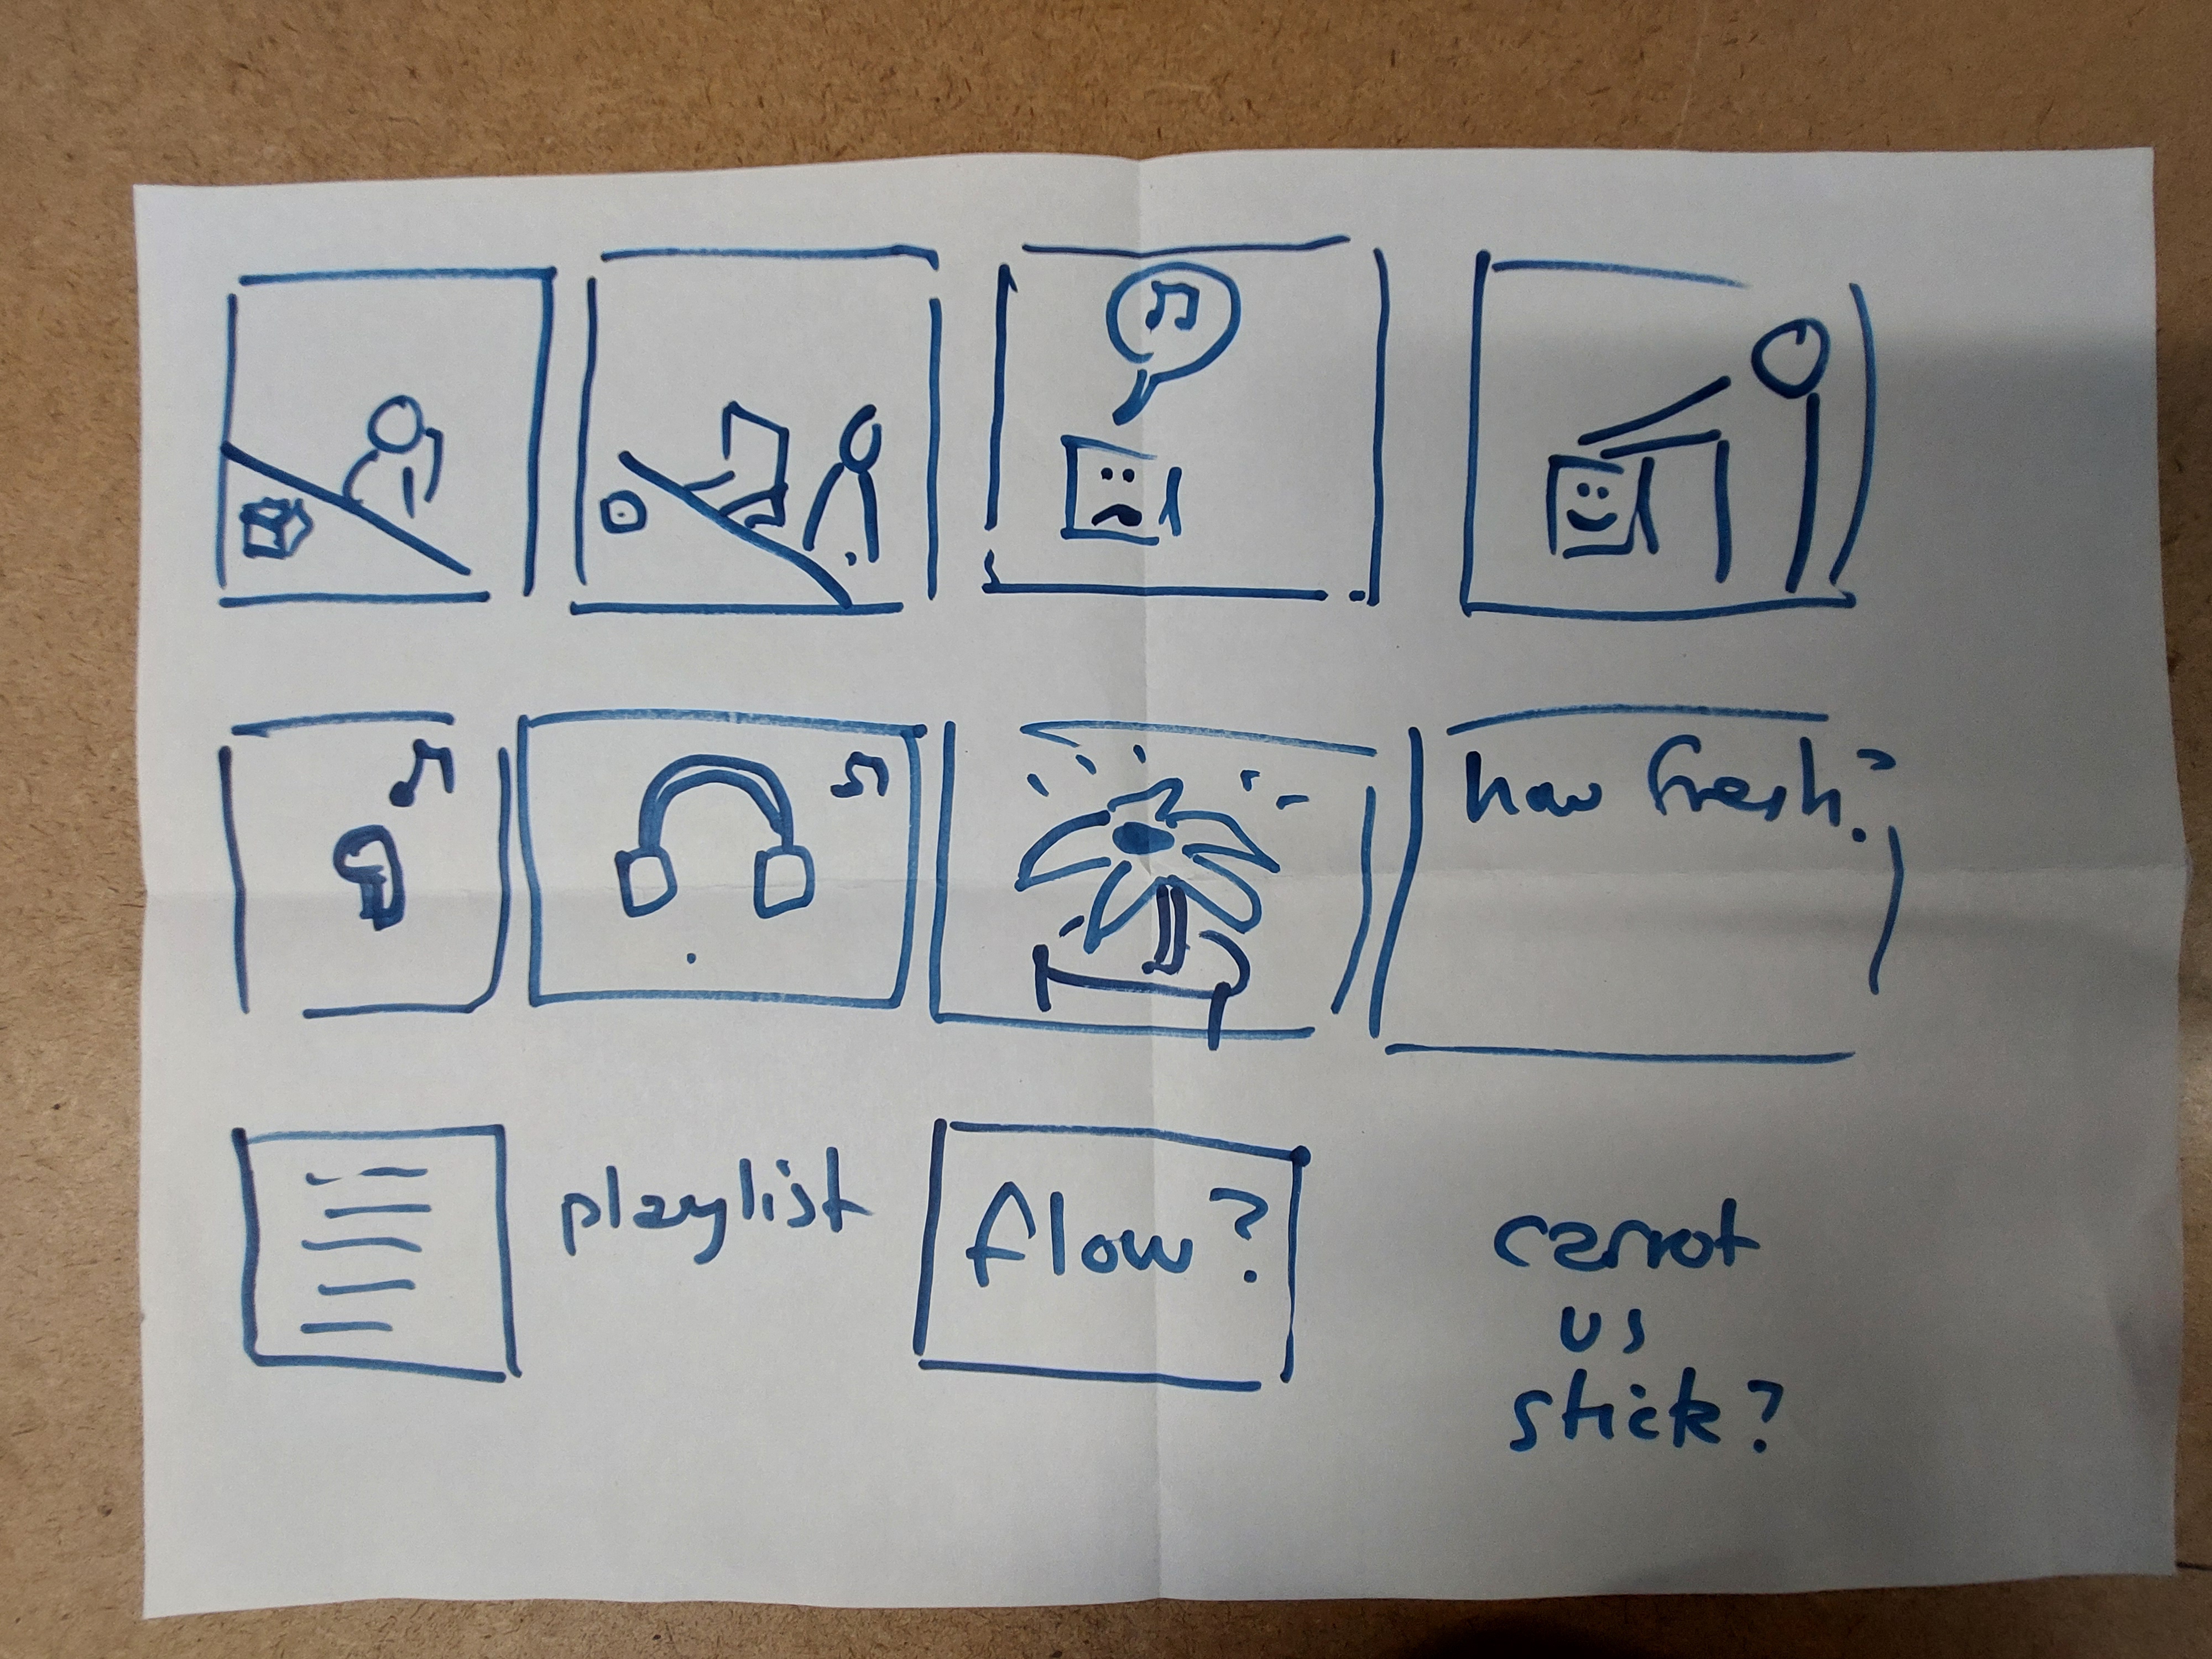 how fresh?
playlist
flow?
carrot
vs
stick?